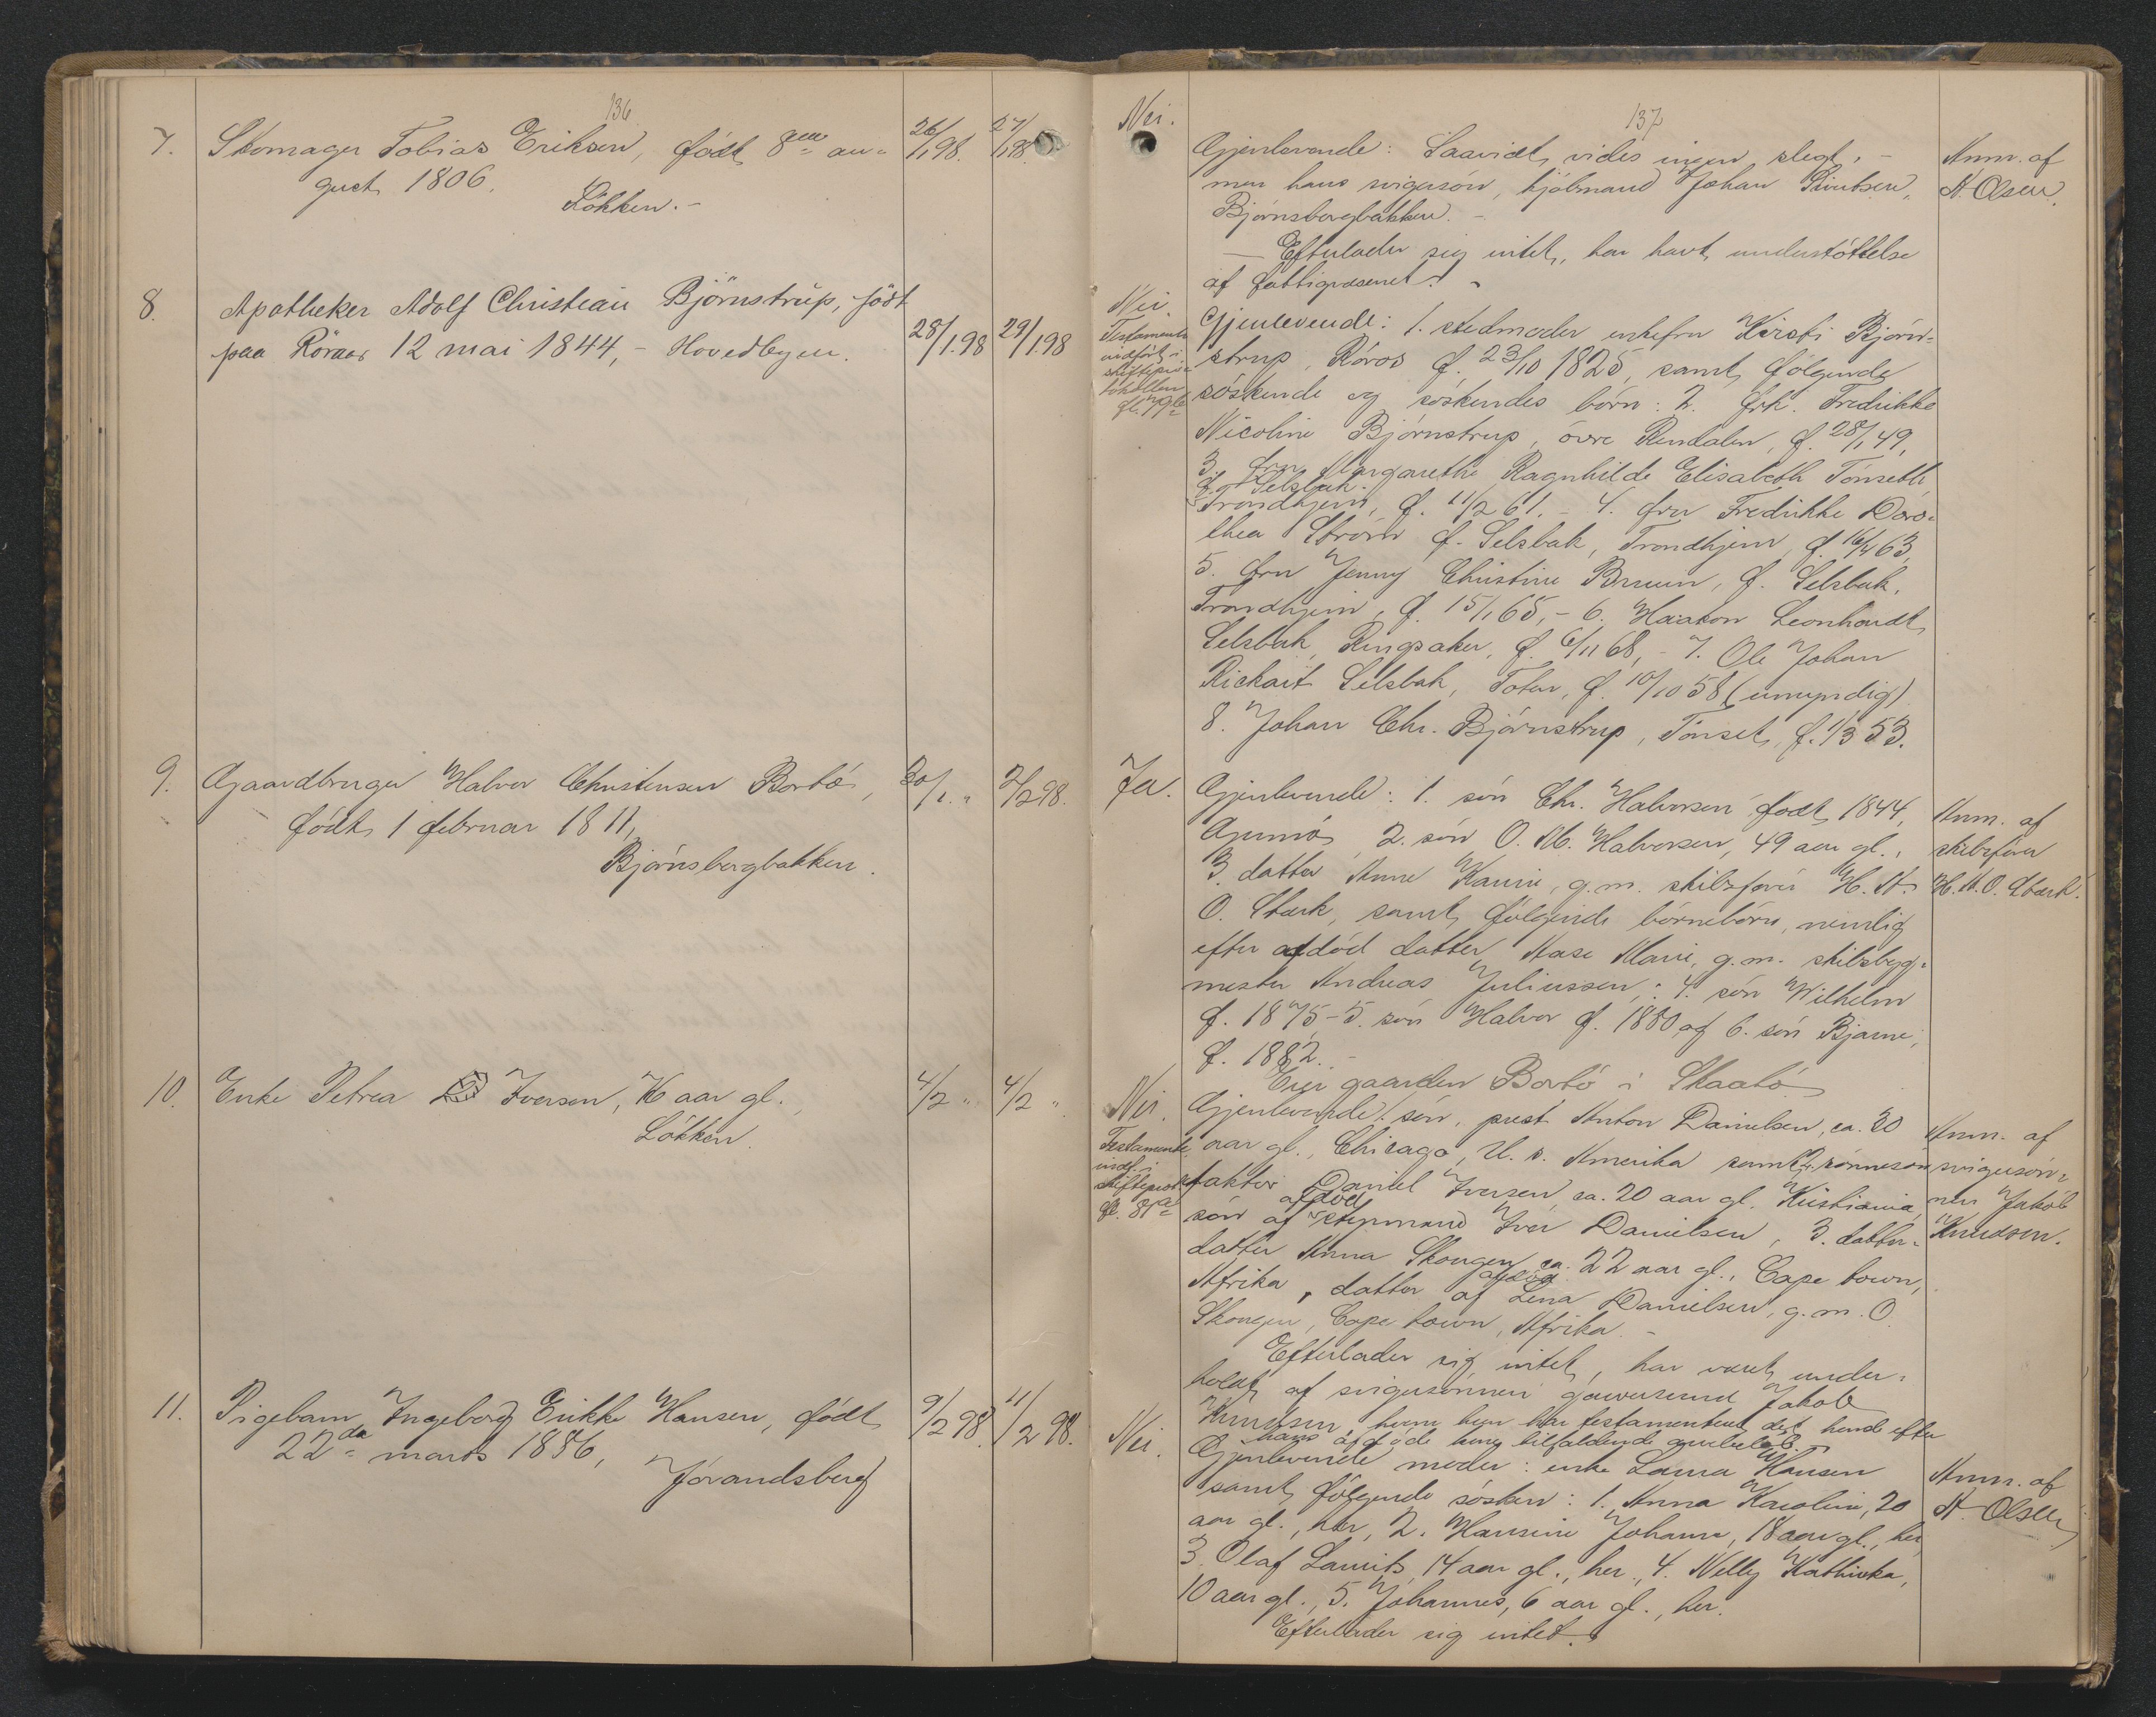 136
7. Skomager Tobias Eriksen, født 8de au- 26/1 98. 27/1 98
gust 1806.
Løkken.-
8. Apotheker Adolf Christian Bjørnstrup, født
paa Röraas 12 mai 1844, - Hovedbyen. 28/1.98 29/1.98
9. Gaardbruger Halvor Christensen Borbø, 30/1. " 2/2 98.
født 1 februar 1811,
Bjørnsbergbakken.
10. Enke Petrea Iversen, 76 aar gl. 4/2 " 4/2 "
Løkken.
11. Pigebarn Ingeborg Erikke Hansen, født 9/2 98 11/2 98.
22de marts 1886,
Jørandsberg
137
Nei. Gjenlevende: Saavidt vides ingen slegt, - Anm. af
men hans svigersøn, hjólmand Johan Knutsen, A. Olsen.
Bjørnsbergbakken. -
— Efterlader sig intet, har havt understøttelse
af fattigvæsenet. -
Nei.
Testamente
indført i
skiftepro-
tokollen
fl. 79b
Gjenlevende: 1. stedmoder enkefru Kirsti Bjørn-
strup, Røros f. 23/10 1825, samt følgende
søskende og søskendes børn: 2. frk. Fredrikke
Nicoline Bjørnstrup, øvre Rendalen, f. 28/1 49,
3. fru Margarethe Ragnhilde Elisabeth Tønseth
f. Selsbak.
Trondhjem, f. 11/2 61. - 4. fru Fredrikke Doro-
thea Strøm f. Selsbak, Trondhjem, f. 16/4 63,
5. fru Jenny Christine Bruun, f. Selsbak,
Trondhjem, f. 15/1 65, - 6. Haakon Leonhardt
Selsbak, Ringsaker, f. 6/11 68, - 7. Ole Johan
Richart Selsbak, Toten, f. 10/10 58 (umyndig)
8. Johan Chr. Bjørnstrup, Tønset, f. 1/3 53.
Ja. Gjenlevende: 1. søn Chr. Halvorsen født 1844, Anm. af
2. søn O. M. Halvorsen, 49 aar gl., skibsfører
3. datter Anne Karine, g.m. skibsfører H. A. H. A. O. Stark.
O. Stark, samt følgende børnebørn, nemlig
efter afdød datter Aase Marie, g.m. skibsbyg-
mester Andreas Juliussen,: 4. søn Wilhelm
f. 1875 - 5. søn Halvor f. 1880 og 6. søn Bjarne,
f. 1882. -
Eier gaarden Borbø i Skaatø
Nei. Gjenlevende: søn, prest Anton Danielsen, ca. 30 Anm. af
Testamente
indf. i
skifteprot.
fl. 81a
aar gl., Chicago, U. s. Amerika samt 2. sønnesøn svigersøn-
faktor Daniel Iversen, ca. 20 aar gl. Kristiania, nen Jakob
søn af afdød styrmand Iver Danielsen, 3. datter- Knudsen.
datter Anna Skougen ca. 22 aar gl., Cape town,
Afrika, datter af afdød Lena Danielsen, g. m. O.
Skougen, Cape town, Afrika. -
Efterlader sig intet, har været under-
holdt af svigersønnen Jakob
Knudsen, hvem hun har testamenteret det hende efter
hans afdøde tilfaldende
Nei. Gjenlevende moder: enke Laura Hansen Anm. af
samt følgende søsken: 1. Anna Karoline, 20 A. Olsen
aar gl., her, 2. Hansine Johanne, 18 aar gl., her
3. Olaf Laurits, 14 aar gl., her, 4. Nelly Kathinka,
10 aar gl., 5. Johannes, 6 aar gl., her.
Efterlader sig intet.